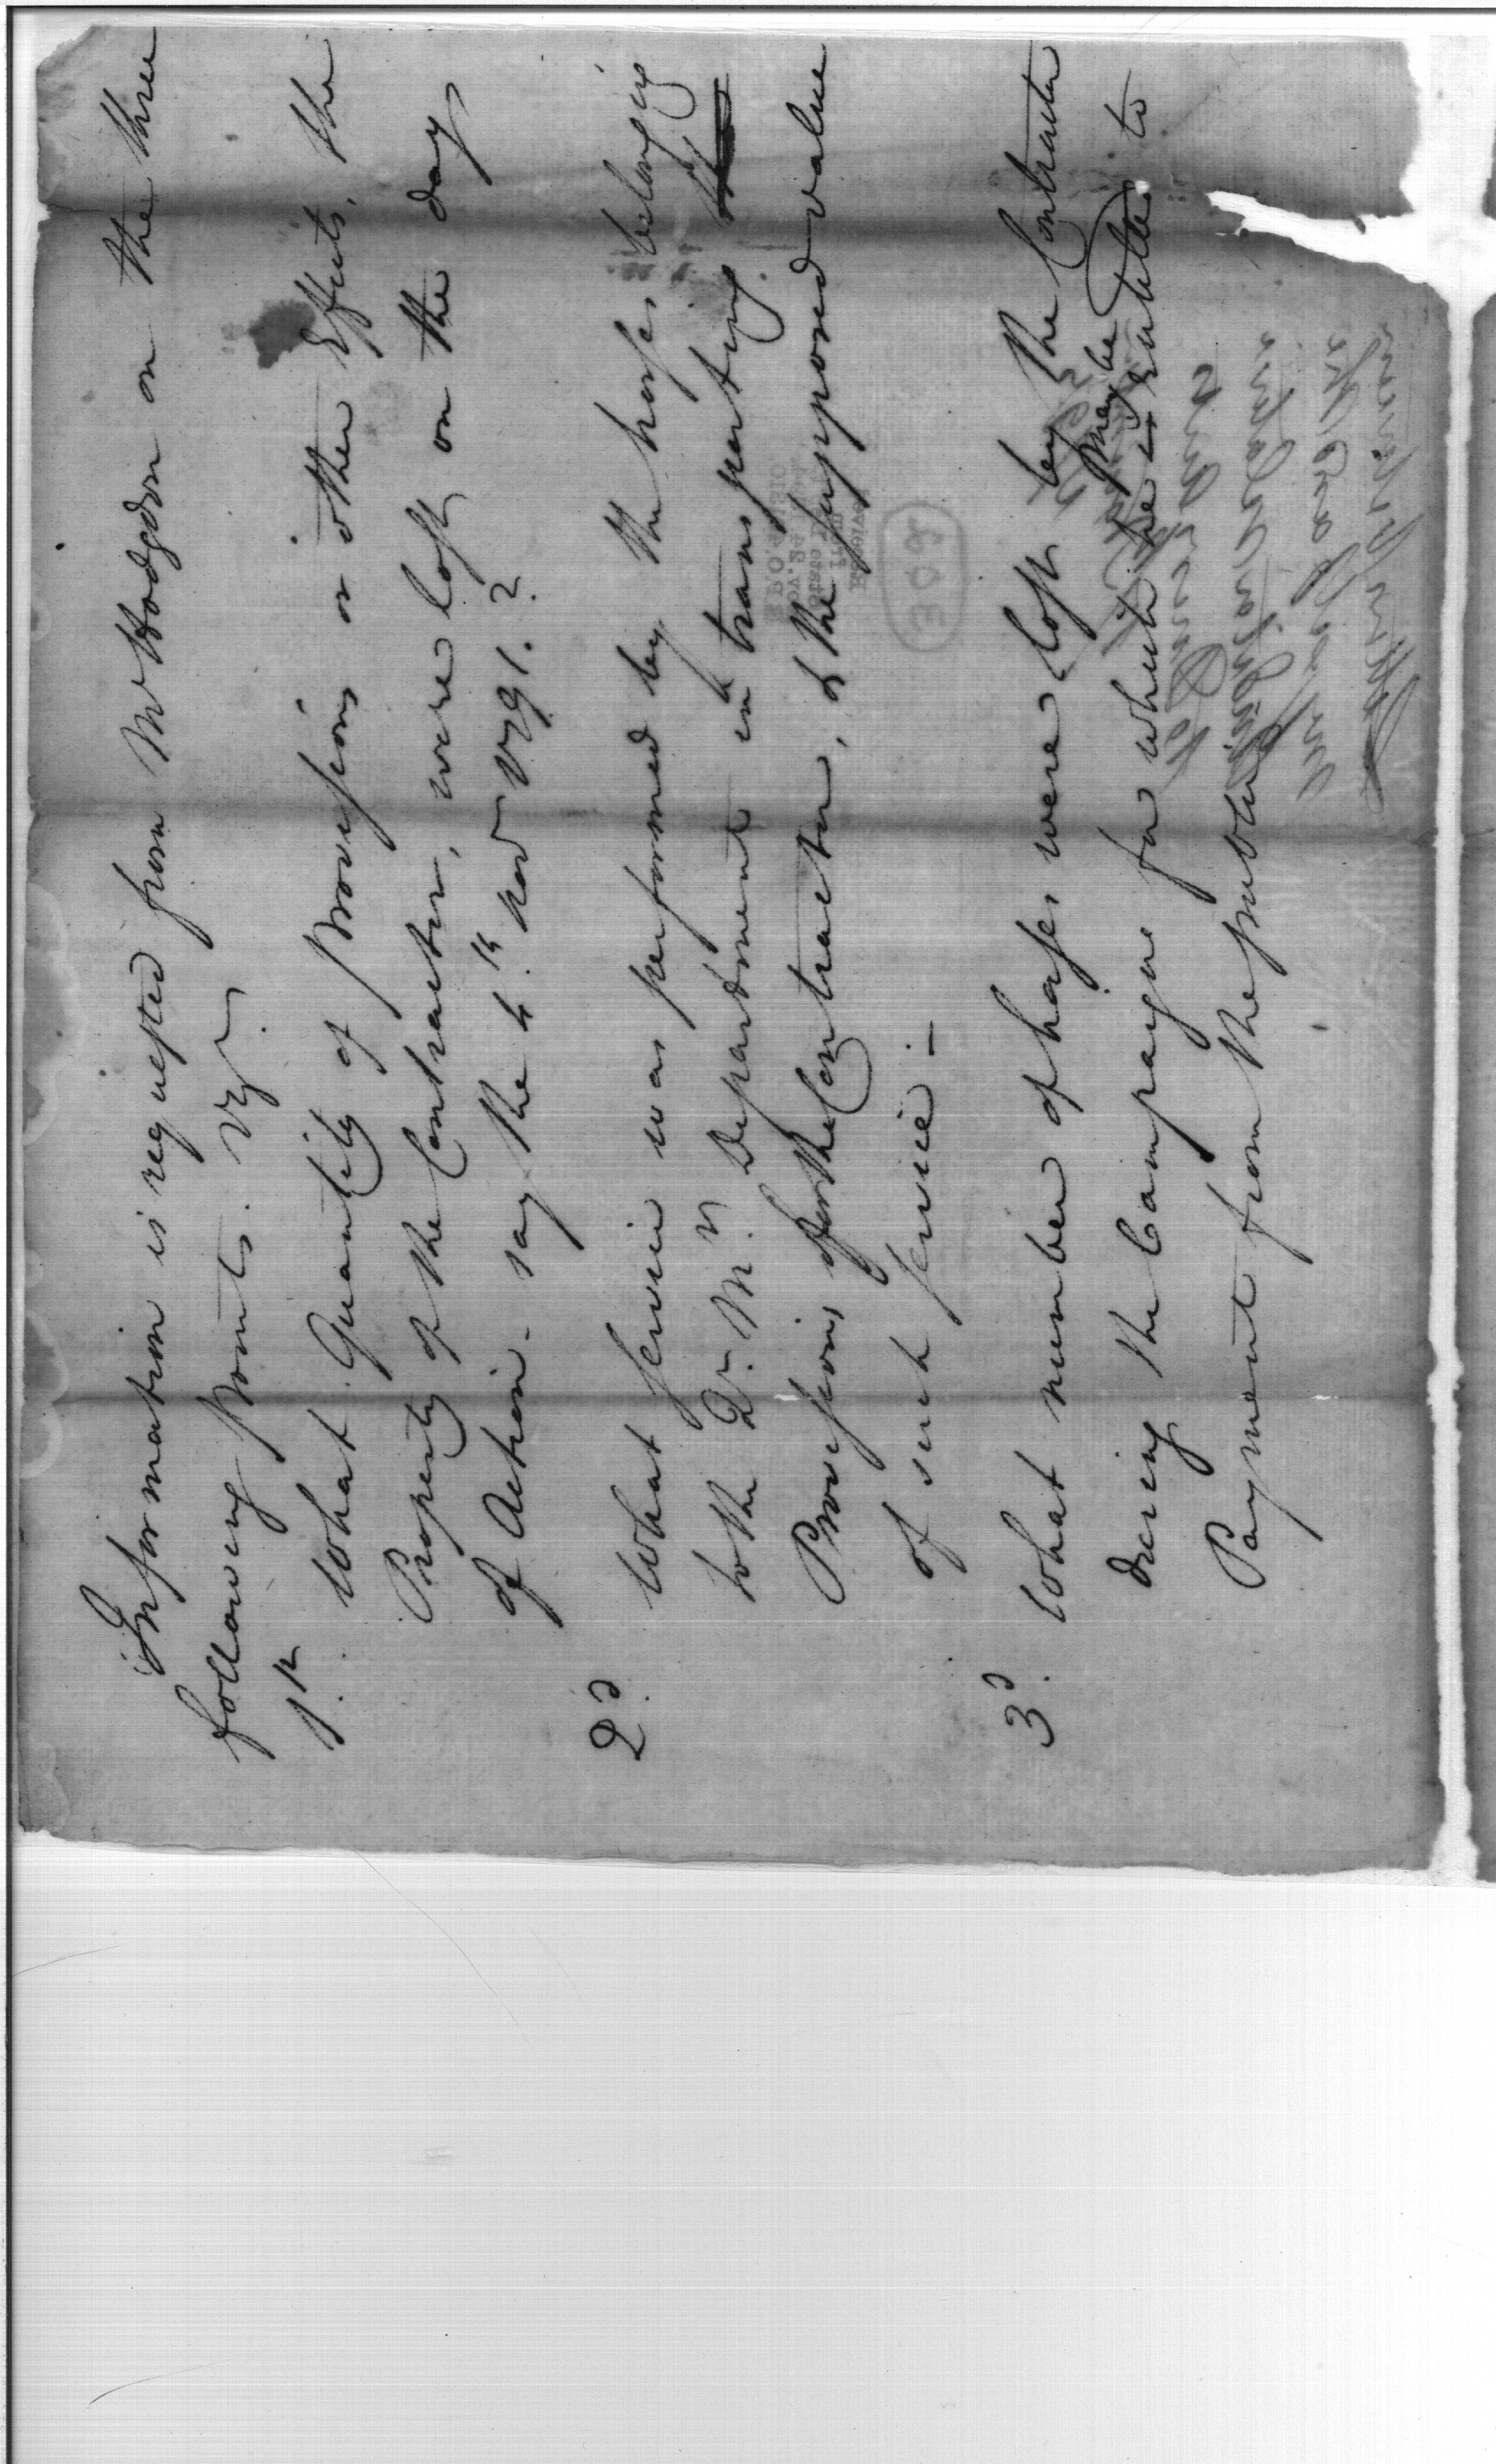 Information is requested from Mr Hodgdon on the three
following Points. Viz.
1st. What Quantity of Provisions or other Effects, the
Property of the Contractor, were lost on the day
of Action - say the 4th Nov 1791.?
2d. What service was performed by the horses belonging
to the Qr. Mr. Department in transporting the
Provisions of for the Contractor, & the supposed value
of such service. —
3d. What number of horses were lost by the Contractor
during the Campaigne for which he is may be entitled to
Payment from the public
302